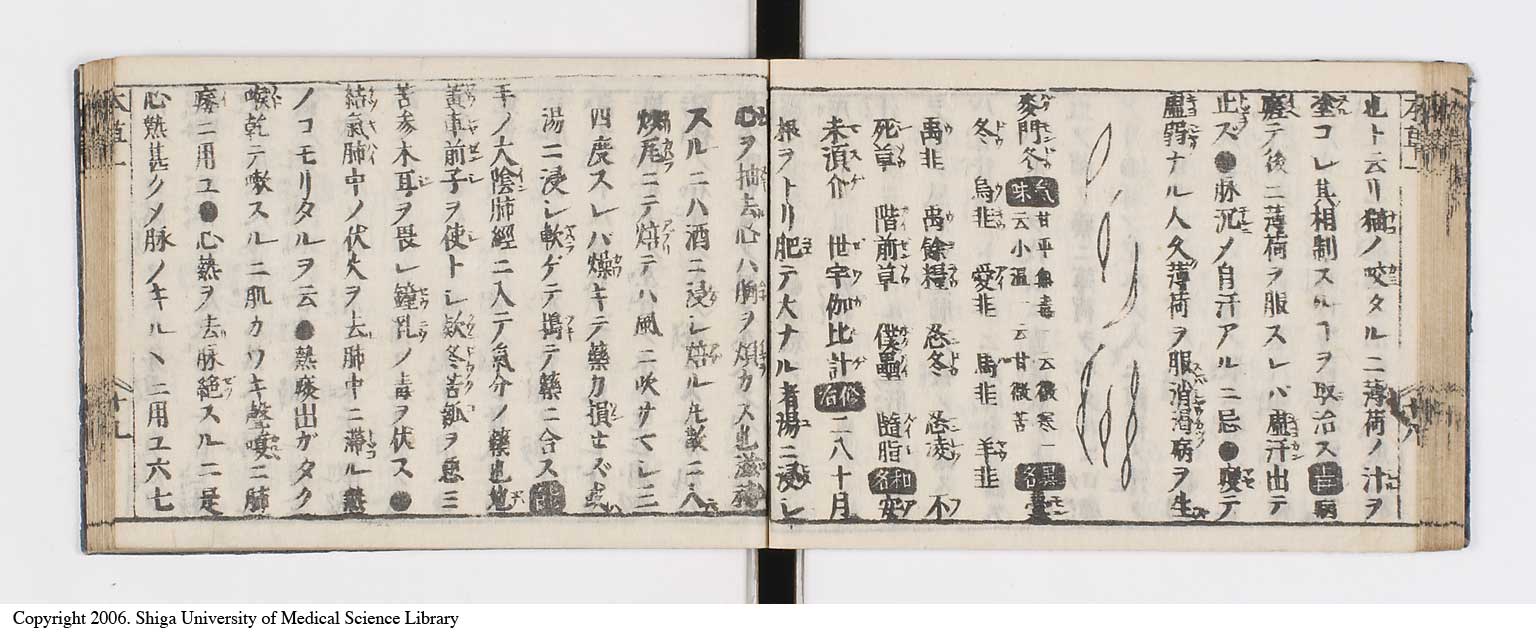 也ト云リ猫ノ咬タルニ薄荷ノ汁ヲ
塗コレ其相制スルヿヲ取治ス 病
瘥テ後ニ薄荷ヲ服スレバ虚汗出テ
止ズ●脉沉メ自汗アルニ忌●瘦テ
虚弱ナル人久薄荷ヲ服消渇病ヲ生
麥門冬 気味 甘平無毒 云微寒 云小温 云甘微苦 異名
冬 烏韭 愛韭 馬韭 羊韭
禹韭 禹餘糧 忍冬 忍凌 不
死草 階前草 僕壘 隨脂 和名
未湏介 世宇伽比計 修治 二八十月
根ヲトリ肥テ大ナル者湯ニ浸シ
心ヲ抽去心ハ胸ヲ煩カス也滋補
スルニハ酒ニ浸シ焙ル丸散ニハ
焙テハ風ニ吹サマシ三
四度スレバ燥キテ藥力損セズ或
湯ニ浸シ軟ゲテ搗テ藥ニ合ス
手ノ大陰肺經ニ入テ氣分ノ藥也地
黄車前子ヲ使トシ欵冬苦瓠ヲ悪ミ
苦参木耳ヲ畏レ鐘乳ノ毒ヲ伏ス●
結氣肺中ノ伏火ヲ去肺中ニ滞ル熱
ノコモリタルヲ云●熱痰出ガタク
喉乾テ嗽スルニ肌カワキ聲嗄ニ肺
痿ニ用ユ●心熱ヲ去脉絶スルニ是
心熱甚クメ脉ノキルヽニ用ユ六七
本草一
十八
本草一
十九
Copyright 2006. Shiga University of Medical Science Library